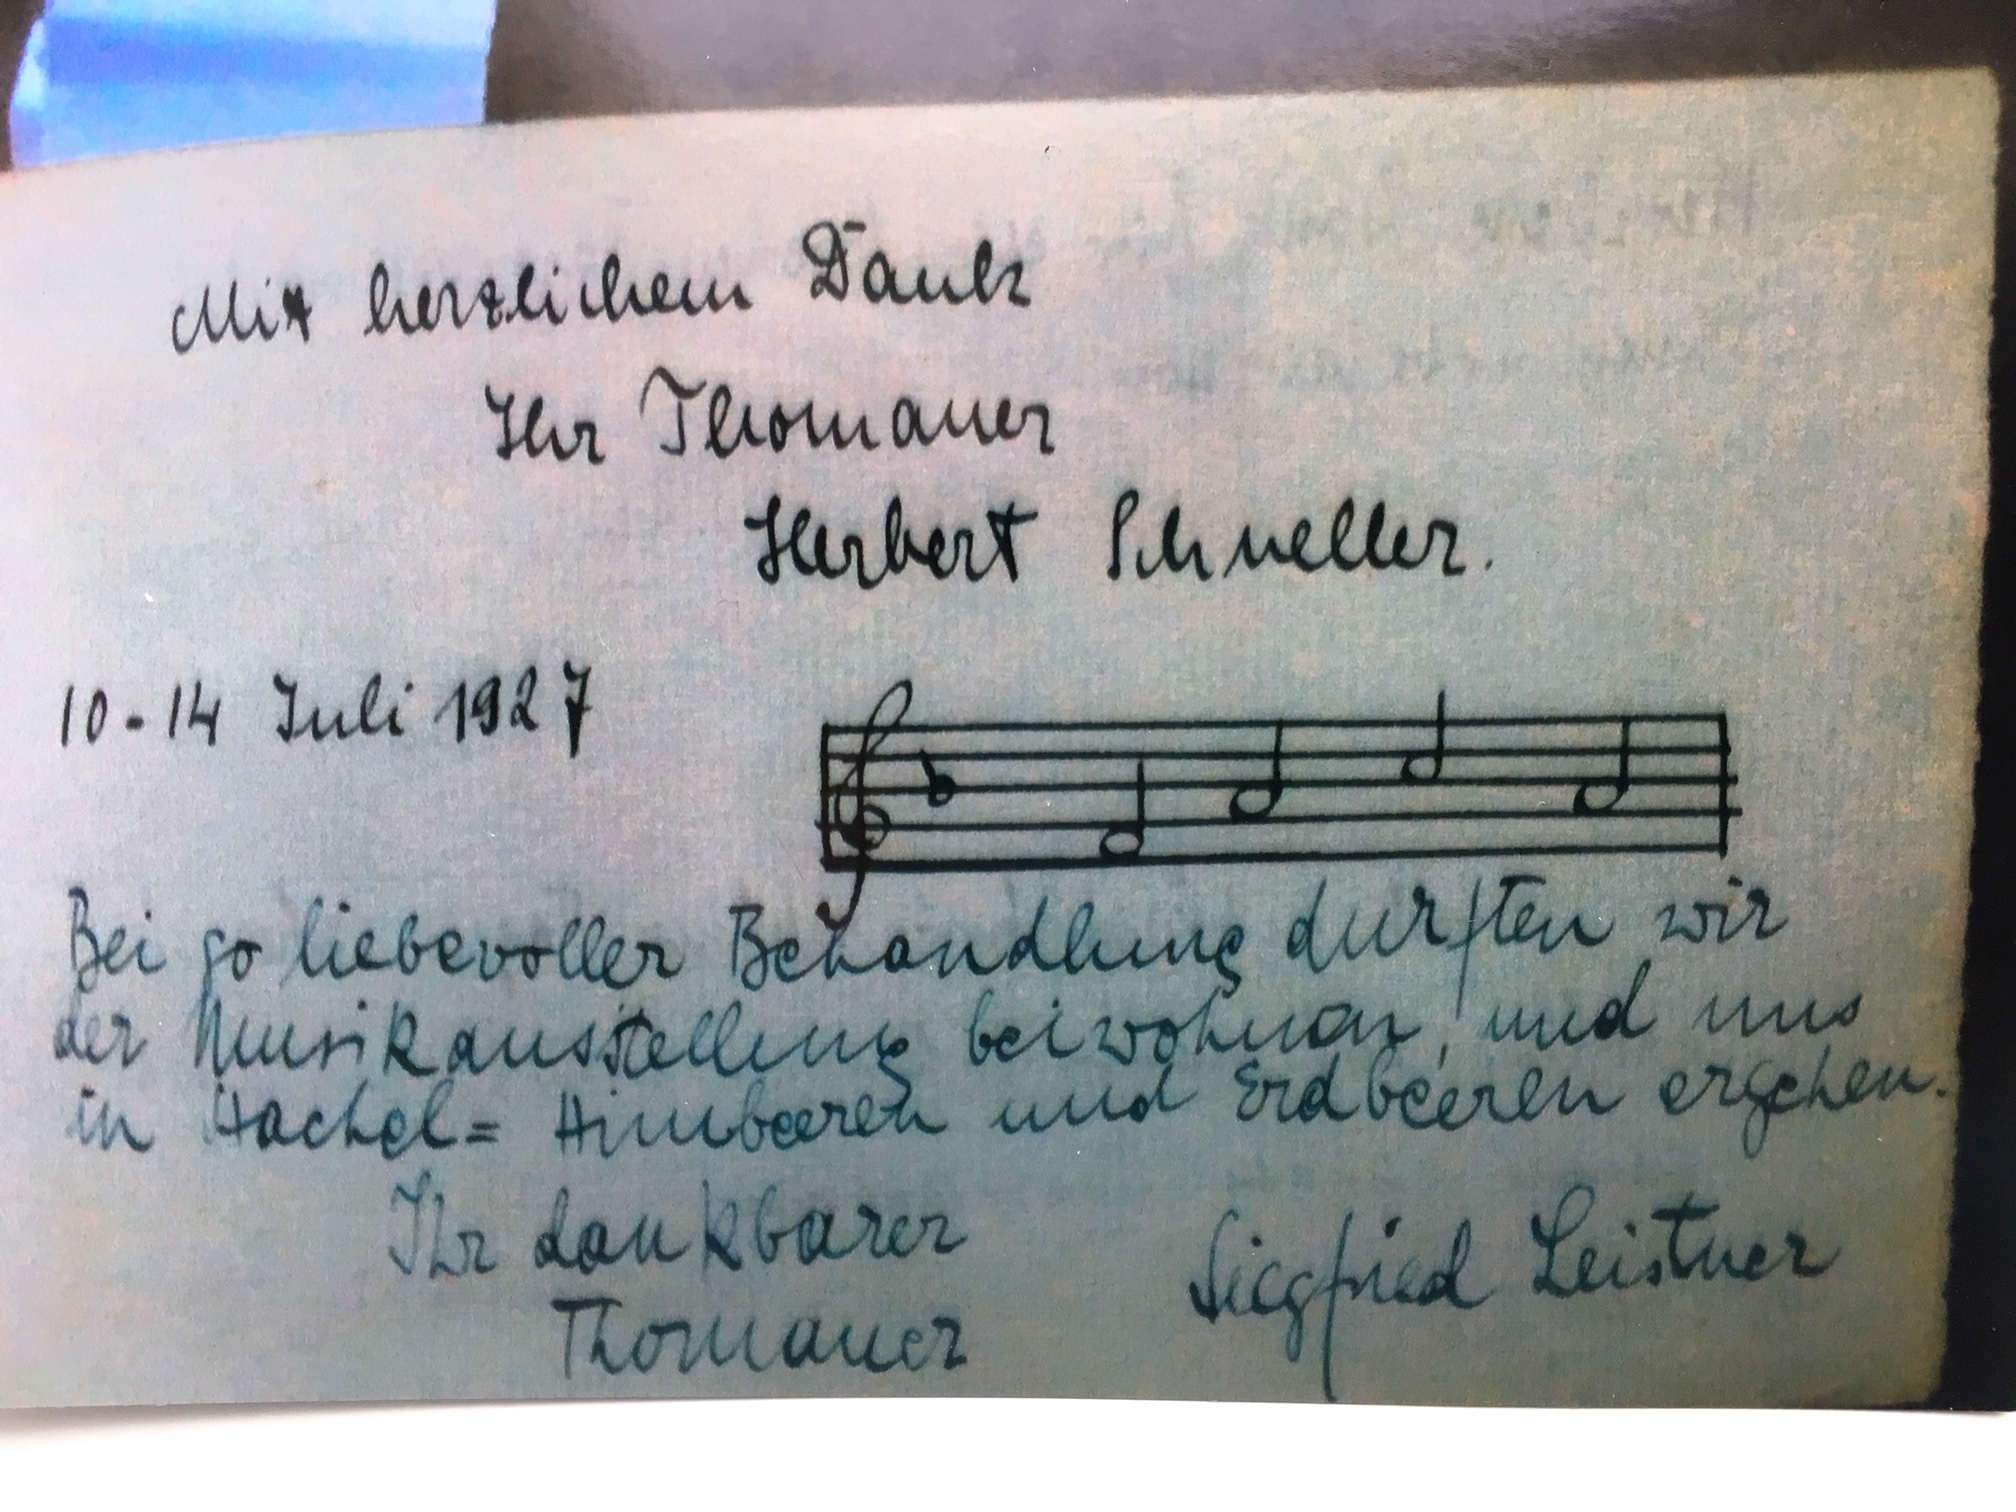 Mit herzlichem Dank
Ihr Thomaner
Herbert Schneller.
10-14 Juli 1927
Bei so liebevoller Behandlung durften wir
der Musikausstellung beiwohnen, und uns
in Stachel= Himbeeren und Erdbeeren ergehen.
Ihr dankbarer
Thomaner
Siegfried Leistner